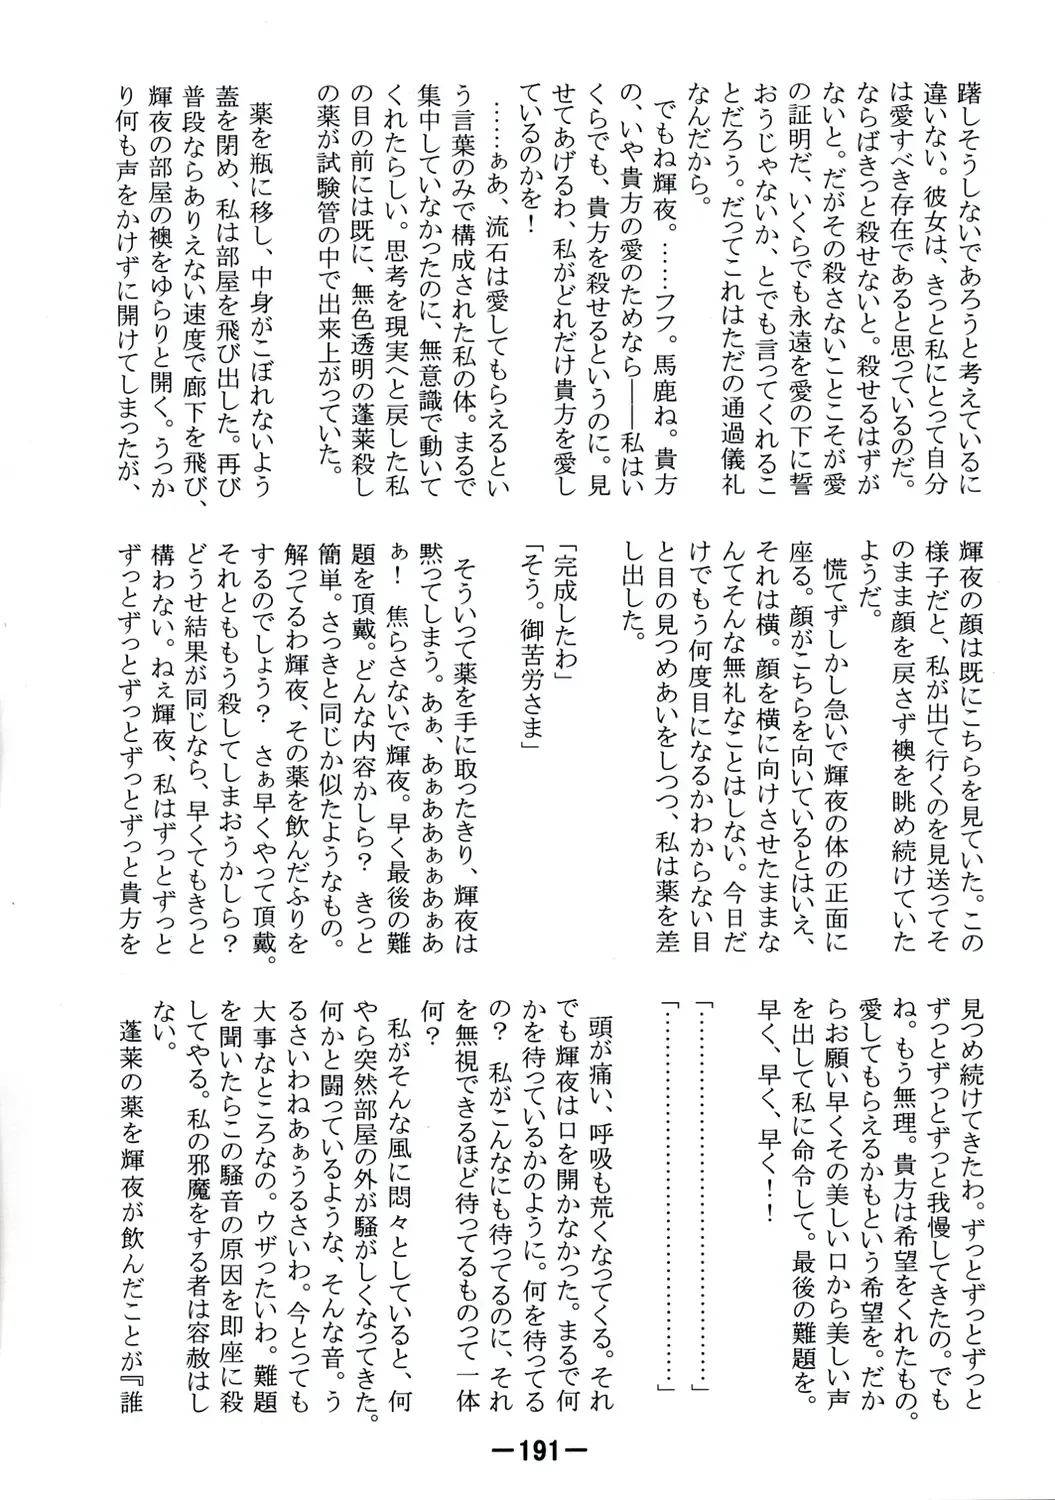 躇しそうしないであろうと考えているに
違いない。彼女は、きっと私にとって自分
は愛すべき存在であると思っているのだ。
ならばきっと殺せないと。殺せるはずが
ないと。だがその殺さないことこそが愛
の証明だ、いくらでも永遠を愛の下に誓
おうじゃないか、とでも言ってくれるこ
とだろう。だってこれはただの通過儀礼
なんだから。
でもね輝夜。……フフ。馬鹿ね。貴方
の、いや貴方の愛のためなら――私はい
くらでも、貴方を殺せるというのに。見
せてあげるわ、私がどれだけ貴方を愛し
ているのかを！
……ぁあ、流石は愛してもらえるとい
う言葉のみで構成された私の体。まるで
集中していなかったのに、無意識で動いて
くれたらしい。思考を現実へと戻した私
の目の前には既に、無色透明の蓬莱殺し
の薬が試験管の中で出来上がっていた。
薬を瓶に移し、中身がこぼれないよう
蓋を閉め、私は部屋を飛び出した。再び
普段ならありえない速度で廊下を飛び、
輝夜の部屋の襖をゆらりと開く。うっか
り何も声をかけずに開けてしまったが、
輝夜の顔は既にこちらを見ていた。この
様子だと、私が出て行くのを見送ってそ
のまま顔を戻さず襖を眺め続けていた
ようだ。
慌てずしかし急いで輝夜の体の正面に
座る。顔がこちらを向いているとはいえ、
それは横。顔を横に向けさせたままな
んてそんな無礼なことはしない。今日だ
けでもう何度目になるかわからない目
と目の見つめあいをしつつ、私は薬を差
し出した。
「完成したわ」
「そう。御苦労さま」
そういって薬を手に取ったきり、輝夜は
黙ってしまう。あぁ、あぁああぁぁあぁあ
ぁ！　焦らさないで輝夜。早く最後の難
題を頂戴。どんな内容かしら？　きっと
簡単。さっきと同じか似たようなもの。
解ってるわ輝夜、その薬を飲んだふりを
するのでしょう？　さぁ早くやって頂戴。
それとももう殺してしまおうかしら？
どうせ結果が同じなら、早くてもきっと
構わない。ねぇ輝夜、私はずっとずっと
ずっとずっとずっとずっとずっと貴方を
見つめ続けてきたわ。ずっとずっとずっと
ずっとずっとずっと我慢してきたの。でも
ね。もう無理。貴方は希望をくれたもの。
愛してもらえるかもという希望を。だか
らお願い早くその美しい口から美しい声
を出して私に命令して。最後の難題を。
早く、早く、早く！！
「…………………………………」
「…………………………………」
頭が痛い、呼吸も荒くなってくる。それ
でも輝夜は口を開かなかった。まるで何
かを待っているかのように。何を待ってる
の？　私がこんなにも待ってるのに、それ
を無視できるほど待ってるものって一体
何？
私がそんな風に悶々としていると、何
やら突然部屋の外が騒がしくなってきた。
何かと闘っているような、そんな音。う
るさいわねあぁうるさいわ。今とっても
大事なところなの。ウザったいわ。難題
を聞いたらこの騒音の原因を即座に殺
してやる。私の邪魔をする者は容赦はし
ない。
蓬莱の薬を輝夜が飲んだことが『誰
―191―